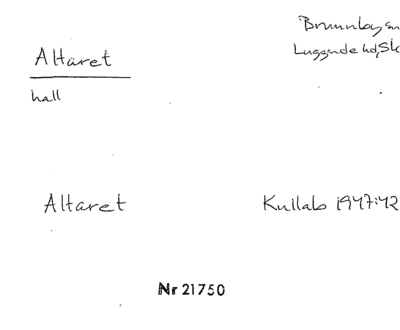 Altaret
Brunnby sn
Luggude hd, Sk
hall
Altaret
Kullab 1947:42
Nr 21750